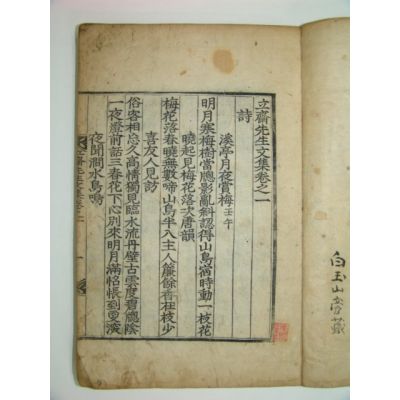 立齋先生文集卷之一
詩
溪亭月夜賞梅 壬午
明月寒梅樹當牕影亂斜認得山鳥宿時動一枝花
曉起見梅花落次唐韻
梅花落春曉無數啼山鳥半入主人簾餘香在枝少
喜友人見訪
俗客相忘久高情獨見臨水流丹壁古雲度碧牕陰
一夜燈前話三春花下心別來明月滿悵到更深
夜聞澗水鳥鳴
白玉山